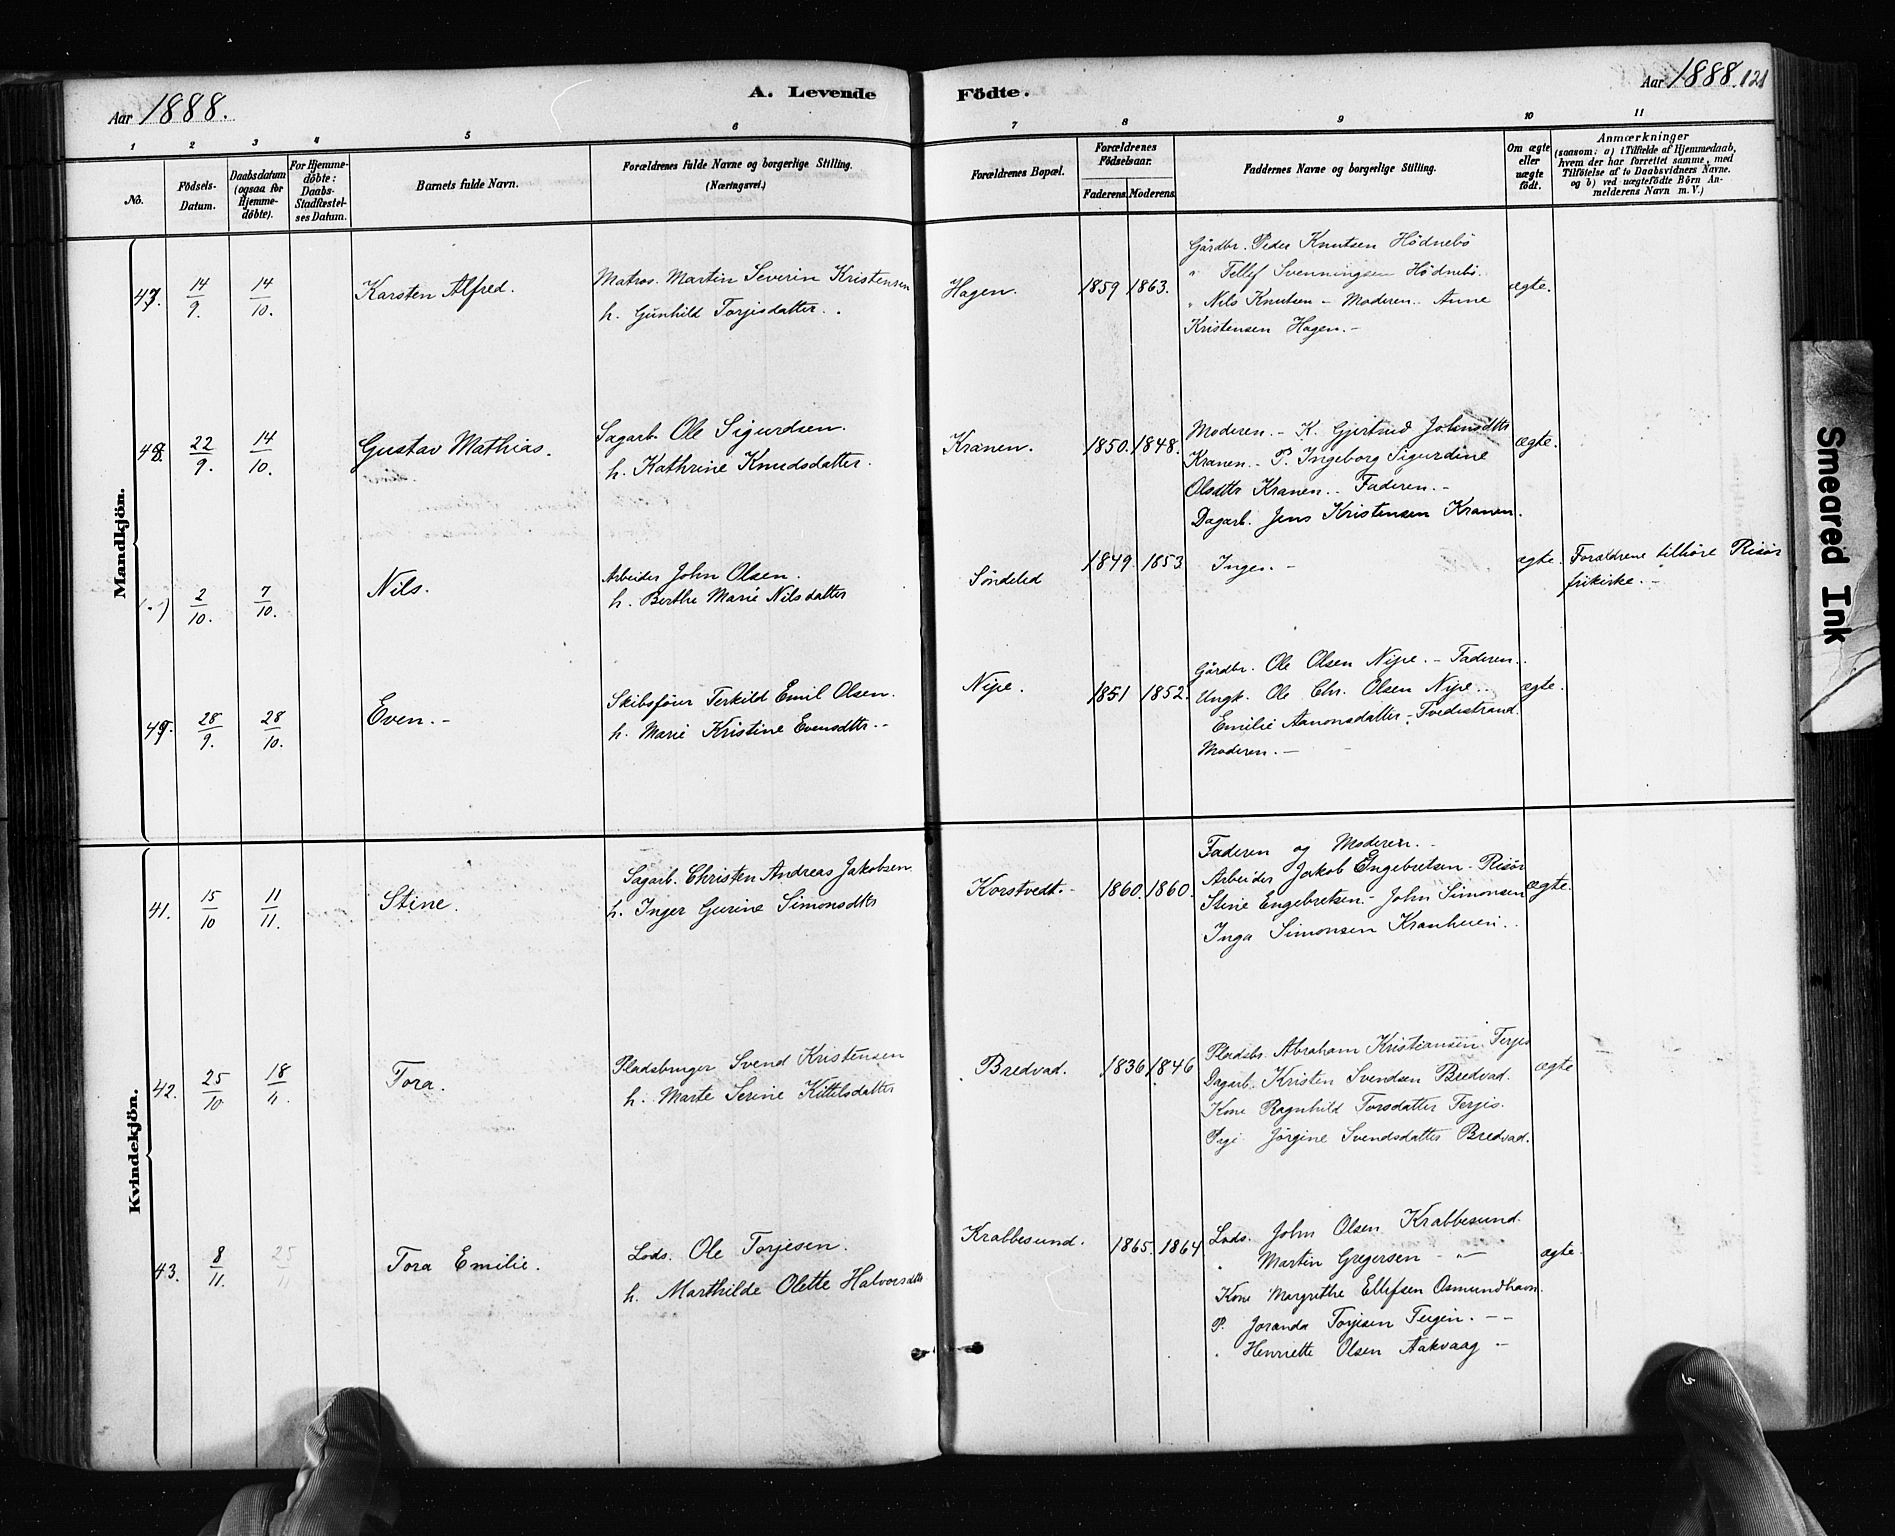 Aar 1888. A. Levende Födte. Aar 1888. 121
1 2 3 4 5 6 7 8 9 10 11
No.
Födsels-
Datum.
Daabsdatum
(ogsaa for
Hjemme-
döbte).
For Hjemme-
döbte:
Daabs-
Stadfæstel-
ses Datum.
Barnets fulde Navn.
Forældrenes fulde Navne og borgerlige Stilling.
(Næringsvei.)
Forældrenes Bopæl.
Forældrenes
Födselsaar.
Faderens. Moderens.
Faddernes Navne og borgerlige Stilling.
Om ægte
eller
uægte
födt.
Anmærkninger
(saasom: a) i Tilfælde af Hjemmedaab,
hvem der har forrettet samme, med
Tilföielse af to Daabsvidners Navne.
og b) ved uægtefödte Börn An-
melderens Navn m. V.)
Mandkjön.
47. 14/9. 14/10. Karsten Alfred.
Matros. Martin Severin Kristensen
h. Gunhild Torjisdatter.
Hagen. 1859 1863.
Gårdbr. Peder Knutsen Hödnebö
" Tellef Svenningsen Hödnebö.
" Nils Knutsen - Moderen. Anne
Kristensen Hagen. -
ægte.
48. 22/9. 14/10. Gustav Mathias.
Sagarb. Ole Sigurdsen.
h. Kathrine Knudsdatter.
Kranen. 1850. 1848.
Moderen. - K. Gjertrud Johnsdttr
Kranen. - P. Ingeborg Sigurdine
Olsdttr Kranen. - Faderen. -
Dagarb. Jens Kristensen Kranen.
ægte.
2/10. 7/10. Nils.
Arbeider John Olsen.
h. Berthe Marie Nilsdatter
Söndeled 1849. 1853 Ingen. - ægte.
Forældrene tilhöre Risör
frikirke. -
49. 28/9. 28/10. Even. -
Skibsförer Terkild Emil Olsen.
h. Marie Kristine Evensdttr. -
Nipe. 1851 1852.
Gårdbr. Ole Olsen Nipe. - Faderen.
Ungk. Ole Chr. Olsen Nipe. -
Emilie Aanonsdatter, Tvedestrand.
Moderen. -
ægte.
Kvindekjön.
41. 15/10 11/11. Stine.
Sagarb. Christen Andreas Jakobsen
h. Inger Gurine Simonsdttr
Korstvedt. - 1860. 1860.
Faderen og Moderen. -
Arbeider Jakob Engebretsen - Risör
Stine Engebretsen - John Simonsen
Inga Simonsen Kranheien.
ægte.
42. 25/10 18/11. Tora.
Pladsbruger Svend Kristensen
h. Marte Serine Kittelsdatter
Bredvad. 1836 1846
Pladsbr. Abraham Kristiansen Terjis
Dagarb. Kristen Svendsen Bredvad.
Kone Ragnhild Torsdatter Terjis.
Pige Jörgine Svendsdatter Bredvad.
ægte
43. 8/11. 25/11 Tora Emilie.
Lods. Ole Torjesen.
h. Marthilde Olette Halvorsdttr
Krabbesund. 1865. 1864
Lods. John Olsen Krabbesund.
" Martin Gregersen - " -
Kone Margrethe Ellefsen Osmundhavn.
P. Joranda Torjesen Teigen. - -
" Henriette Olsen Aakvaag -
ægte.
Smeared Ink